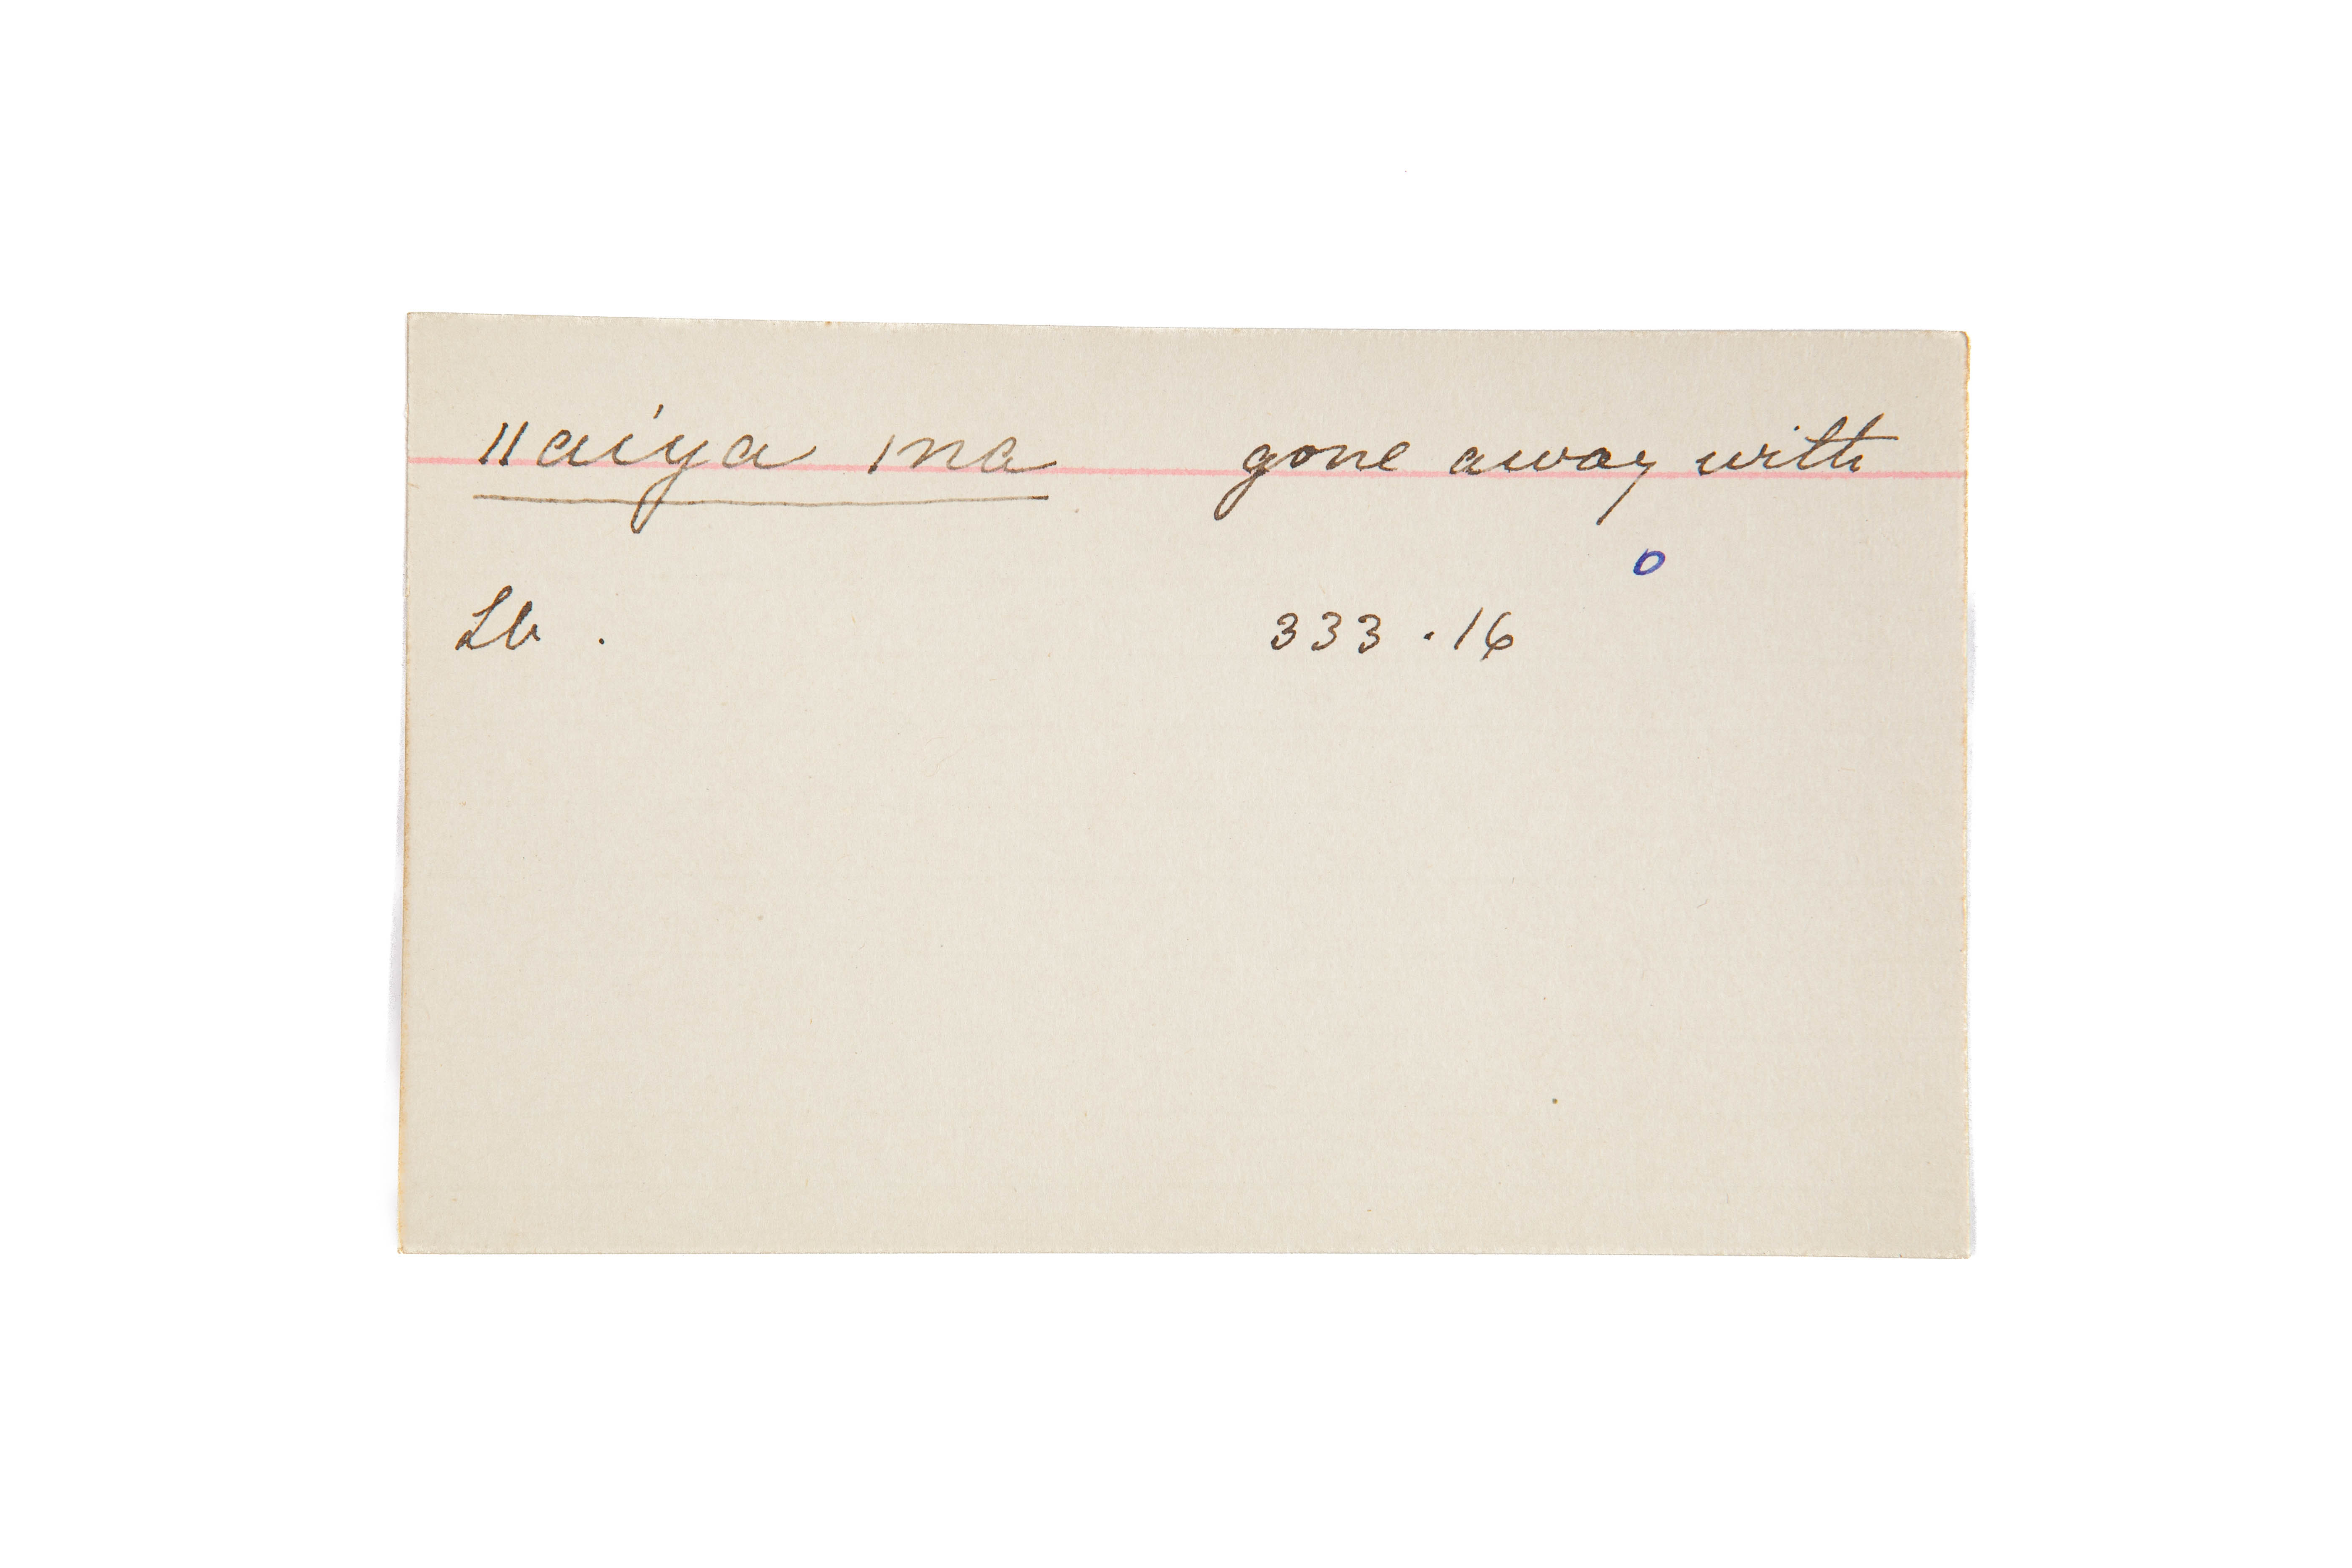 ǁaiya ǀna gone away with
o
Lb. 333.16